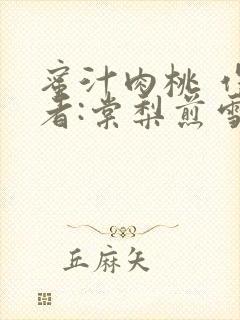 蜜汁肉桃
者:棠梨煎雪
丘麻矢